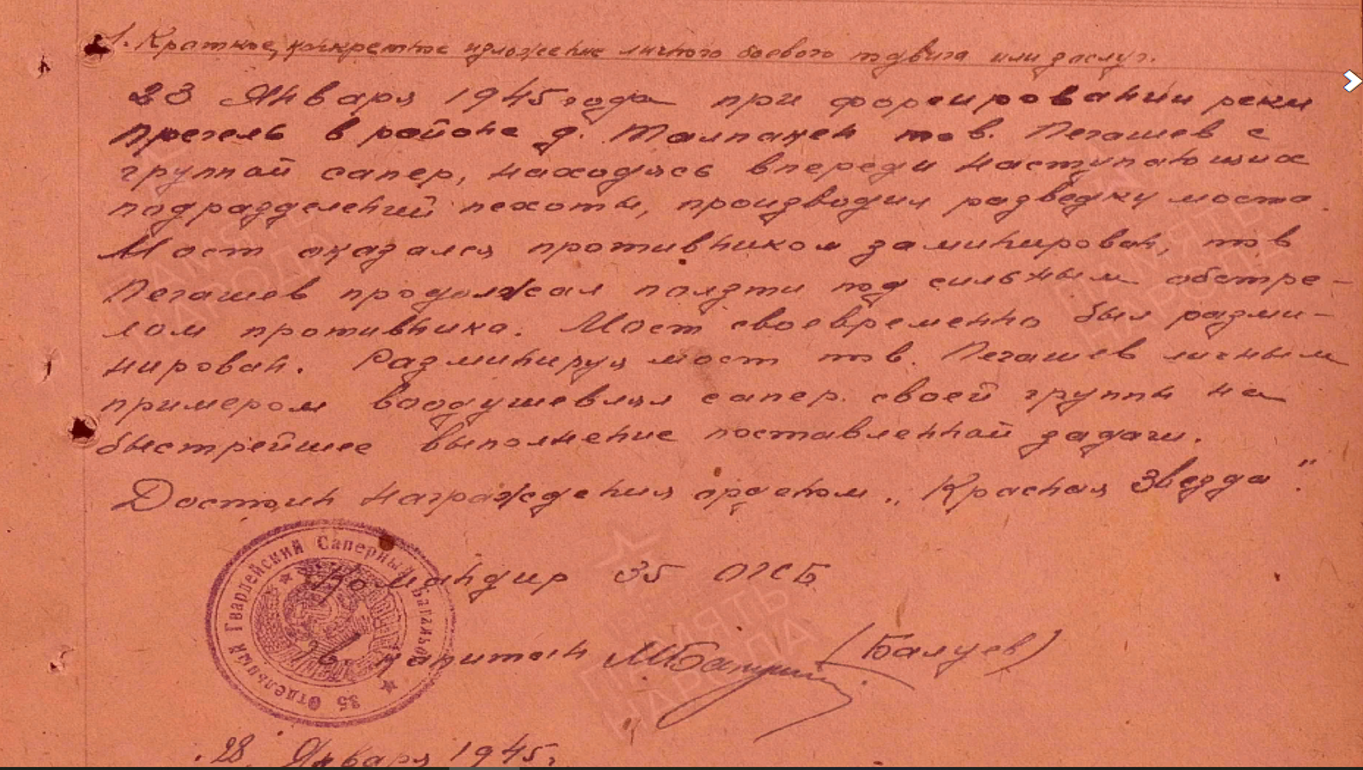 1. Краткое, конкретное изложение личного боевого подвига или заслуг.
23 Января 1945 года при форсировании реки
Прегель в районе д. Таплакен тов. Пегашев с
группой сапер, находясь впереди наступающих
подразделений пехоты, производил разведку моста.
Мост оказался противником заминирован, тов
Пегашев продолжал ползти под сильным обстре-
лом противника. Мост своевременно был разми-
нирован. Разминируя мост тов. Пегашев личным
примером воодушевлял сапер своей группы на
быстрейшее выполнение поставленной задачи.
Достоин награждения орденом „Красная Звезда".
Командир 35 ОГСБ
капитан (Балуев)
28 Января 1945г
35 Отдельный Гвардейский Саперный Батальон
ПАМЯТЬ НАРОДА
ПАМЯТЬ НАРОДА
ПАМЯТЬ НАРОДА